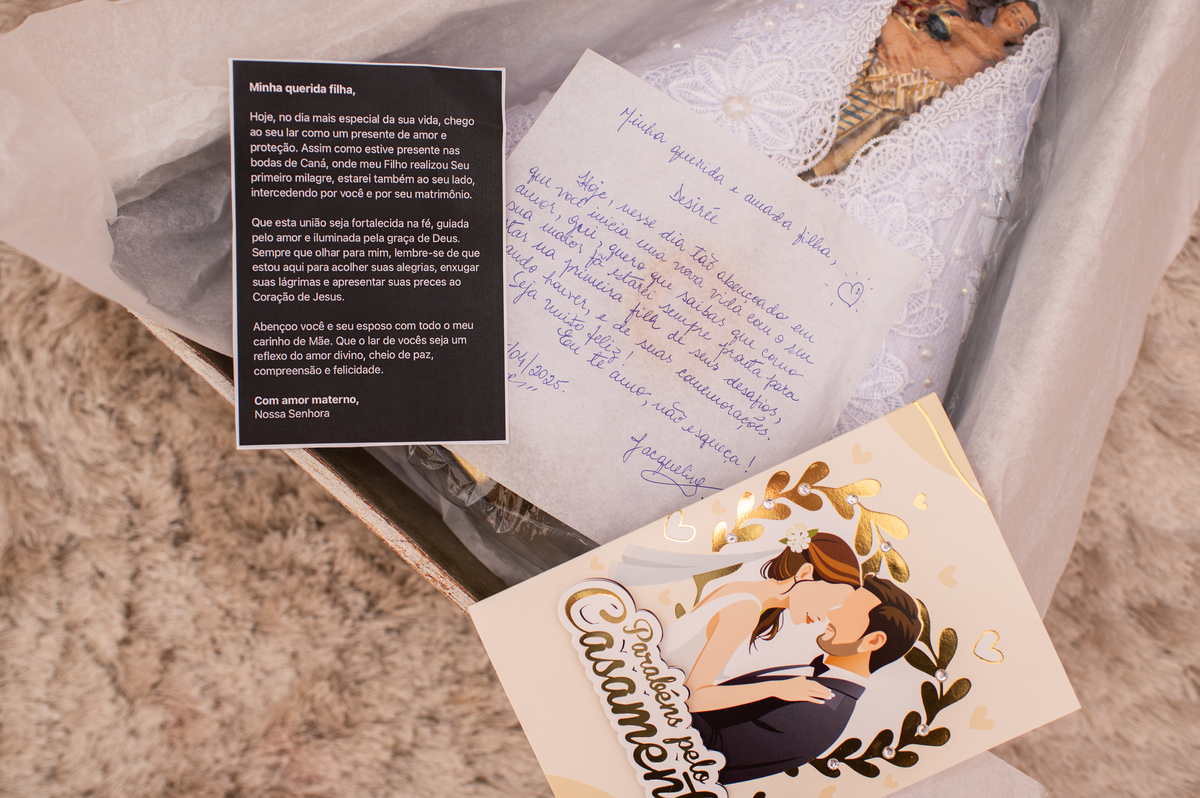 Minha querida filha,
Hoje, no dia mais especial da sua vida, chego
ao seu lar como um presente de amor e
proteção. Assim como estive presente nas
bodas de Caná, onde meu Filho realizou Seu
primeiro milagre, estarei também ao seu lado,
intercedendo por você e por seu matrimônio.
Que esta união seja fortalecida na fé, guiada
pelo amor e iluminada pela graça de Deus.
Sempre que olhar para mim, lembre-se de que
estou aqui para acolher suas alegrias, enxugar
suas lágrimas e apresentar suas preces ao
Coração de Jesus.
Abençoo você e seu esposo com todo o meu
carinho de Mãe. Que o lar de vocês seja um
reflexo do amor divino, cheio de paz,
compreensão e felicidade.
Com amor materno,
Nossa Senhora
Minha querida e amada filha,
Desirée
Hoje, nesse dia tão abençoado em
que você inicia uma nova vida com o seu
amor, quero que saibas que como
sua maior fã estarei sempre pronta para
na primeira fila de seus desafios,
houver, e de suas comemorações.
Seja muito feliz!
Eu te amo, não esqueça!
/04/2025.
Jacqueline
Parabéns pelo
Casament